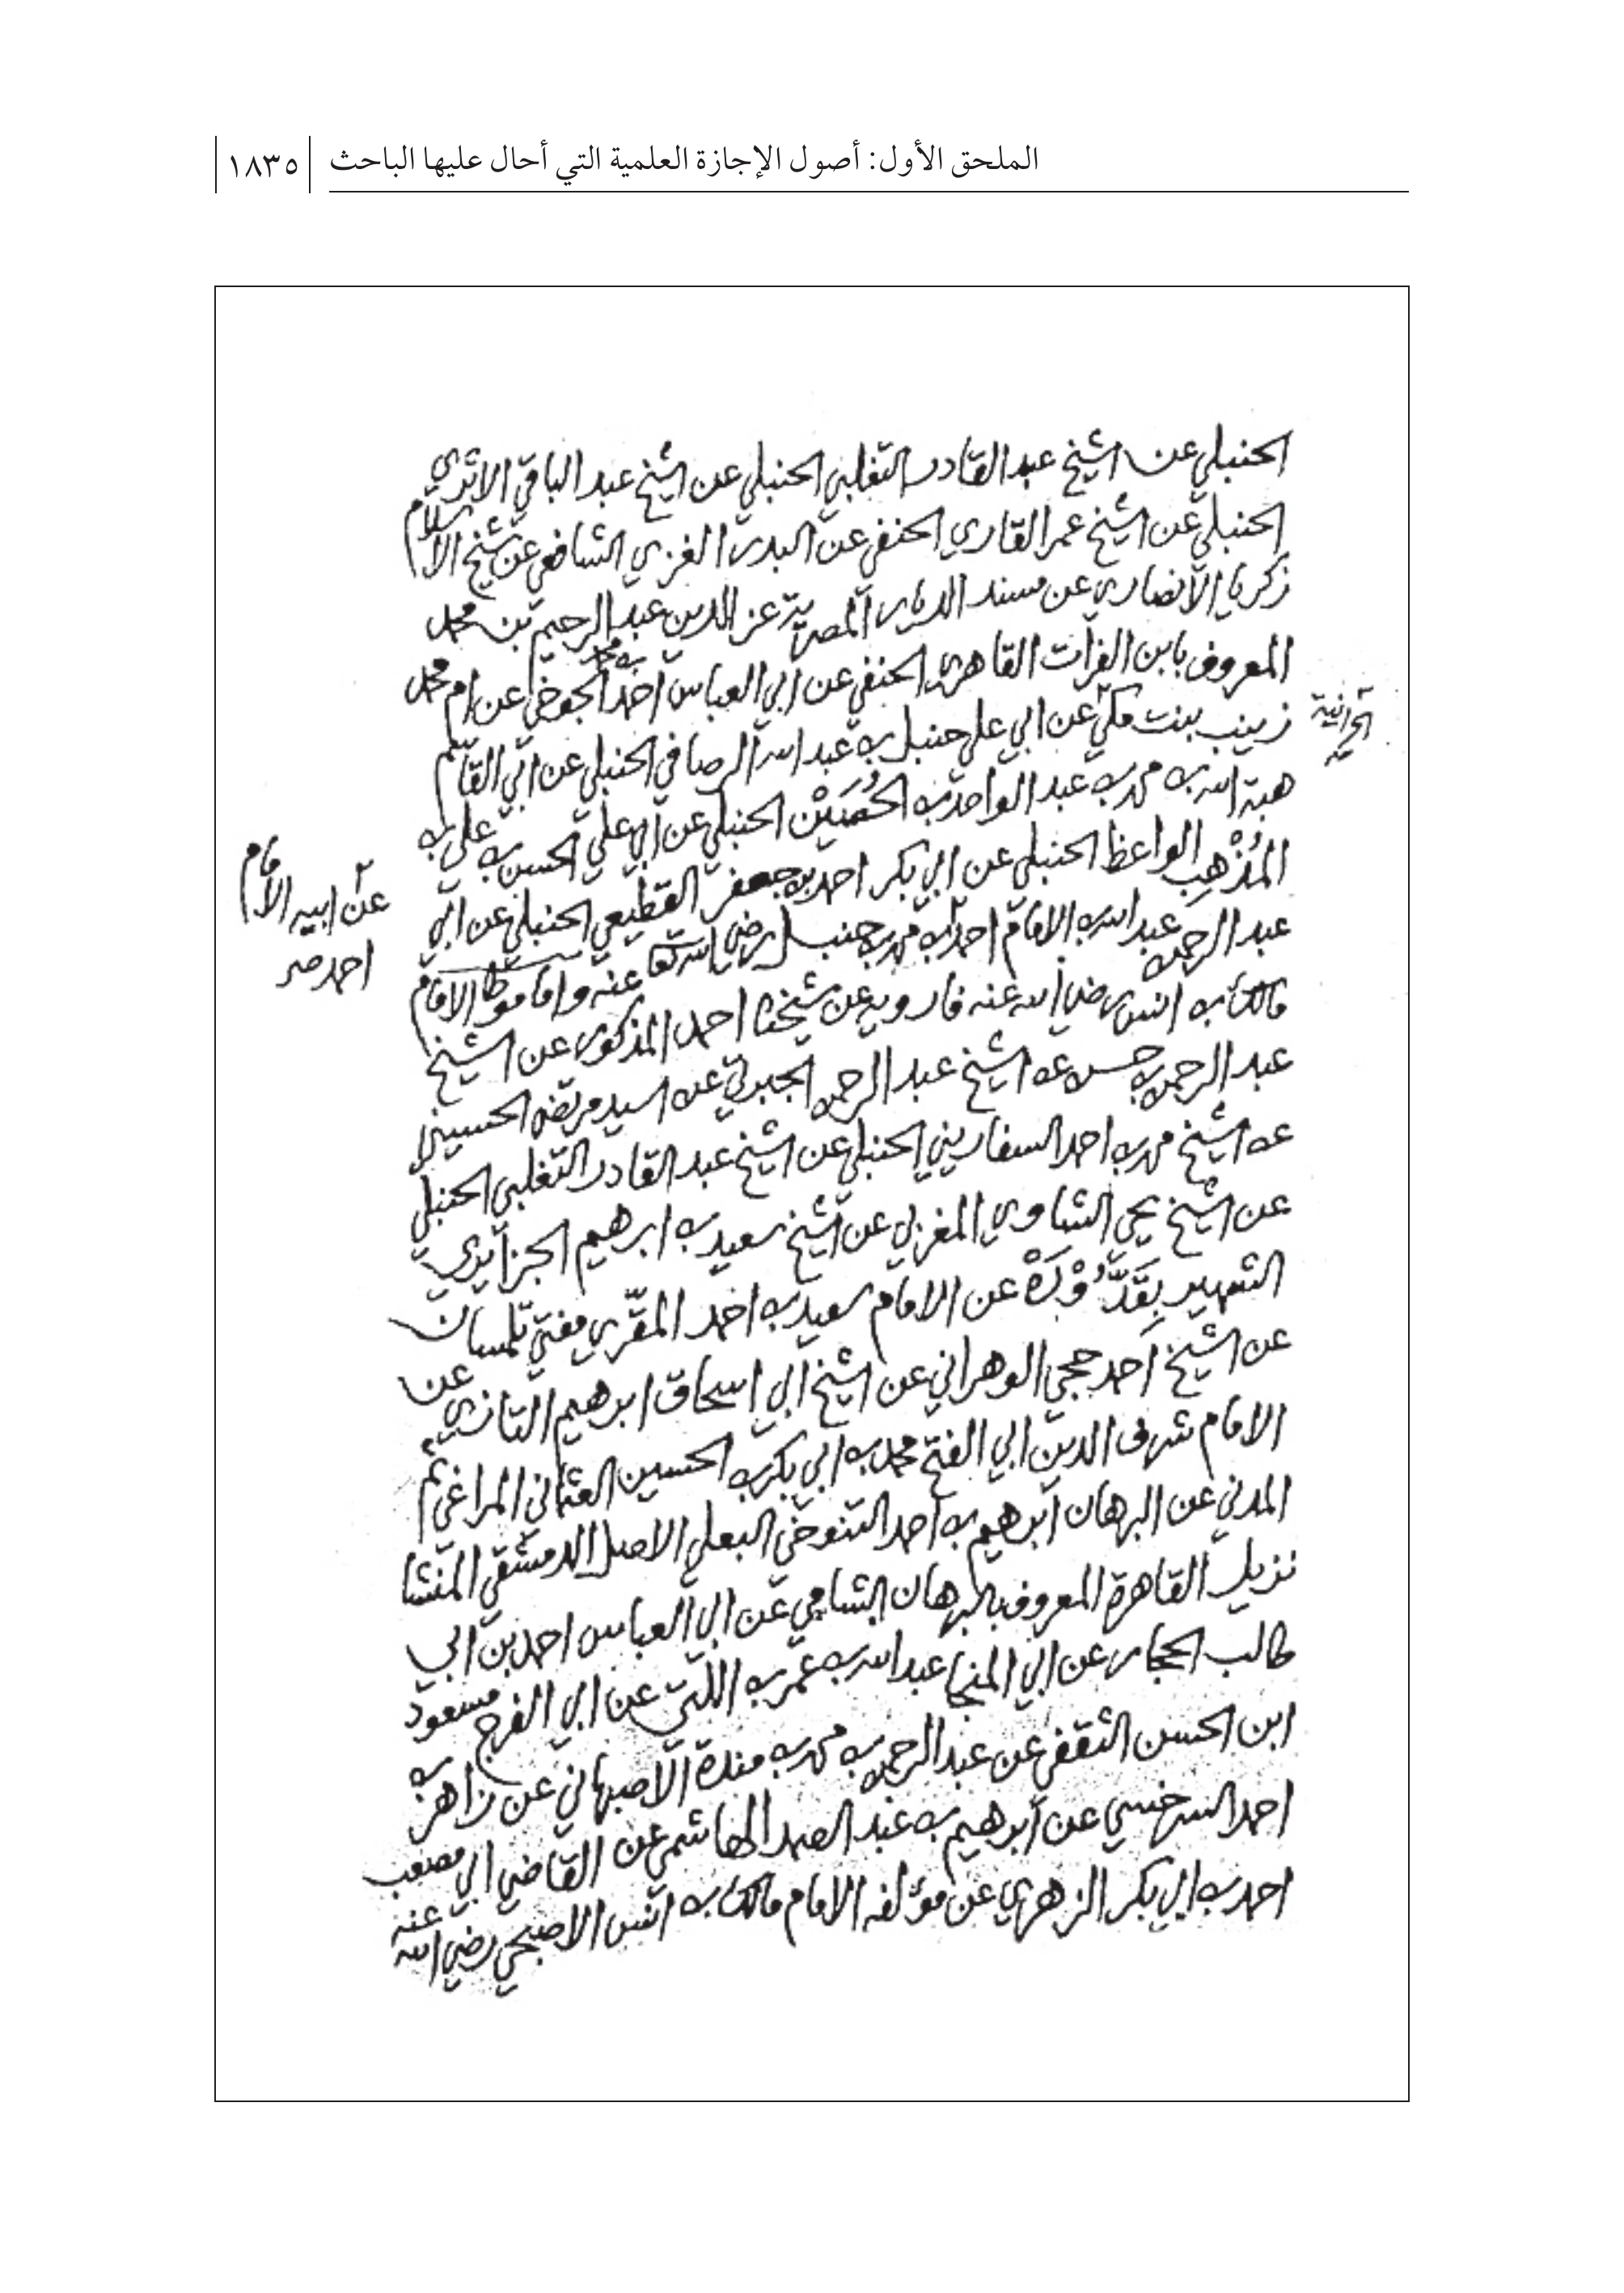 الملحق الأول: أصول الإجازة العلمية التي أحال عليها الباحث
١٨٣٥
الحنبلي عن الشيخ عبد القادر التغلبي الحنبلي عن الشيخ عبد الباقي الاثري
الحنبلي عن الشيخ عمر القاري الحنفي عن البدر الغزي الشافعي عن شيخ الاسلام
زكريا الانصاري عن مسند الديار المصرية عز الدين عبد الرحيم بن محمد
المعروف بابن الفرات القاهري الحنفي عن ابي العباس احمد بن محمد الجوخي عن ام محمد
زينب بنت مكي عن ابي علي حنبل بن عبد الله الرصافي الحنبلي عن ابي القاسم
الحرانية
صح
هبة الله بن محمد بن عبد الواحد بن الحُصَيْن الحنبلي عن ابي علي الحسن بن علي بن
المُذْهِب الواعظ الحنبلي عن ابي بكر احمد بن جعفر القطيعي الحنبلي عن ابي
عبد الرحمن عبد الله بن الامام احمد بن محمد بن حنبل رضي الله تعا عنه واما موطا الامام
عن ابيه الامام
احمد صح
مالك بن انس رضي الله عنه فارويه عن شيخنا احمد المذكور عن الشيخ
عبد الرحمن بن حسن عن الشيخ عبد الرحمن الجبرتي عن السيد مرتضى الحسيني
عن الشيخ محمد بن احمد السفاريني الحنبلي عن الشيخ عبد القادر التغلبي الحنبلي
عن الشيخ يحيى الشاوي المغربي عن الشيخ سعيد بن ابرهيم الجزايري
الشهير بِقَدُّوْرَةْ عن الامام سعيد بن احمد المقّري مفتي تلمسان
عن الشيخ احمد حجي الوهراني عن الشيخ ابي اسحاق ابرهيم التازي عن
الامام شرف الدين ابي الفتح محمد بن ابي بكر بن الحسين العثماني المراغي ثم
المدني عن البرهان ابرهيم بن احمد التنوخي البعلي الاصل الدمشقي المنشا
نزيل القاهرة المعروف بالبرهان الشامي عن ابي العباس احمد بن ابي
طالب الحجار عن ابي المنجا عبد الله بن عمر بن اللتي عن ابي الفرج مسعود
ابن الحسن الثقفي عن عبد الرحمن بن محمد بن مندة الاصبهاني عن زاهر بن
احمد السرخسي عن ابرهيم بن عبد الصمد الهاشمي عن القاضي ابي مصعب
احمد بن ابي بكر الزهري عن مؤلفه الامام مالك بن انس الاصبحي رضي الله عنه